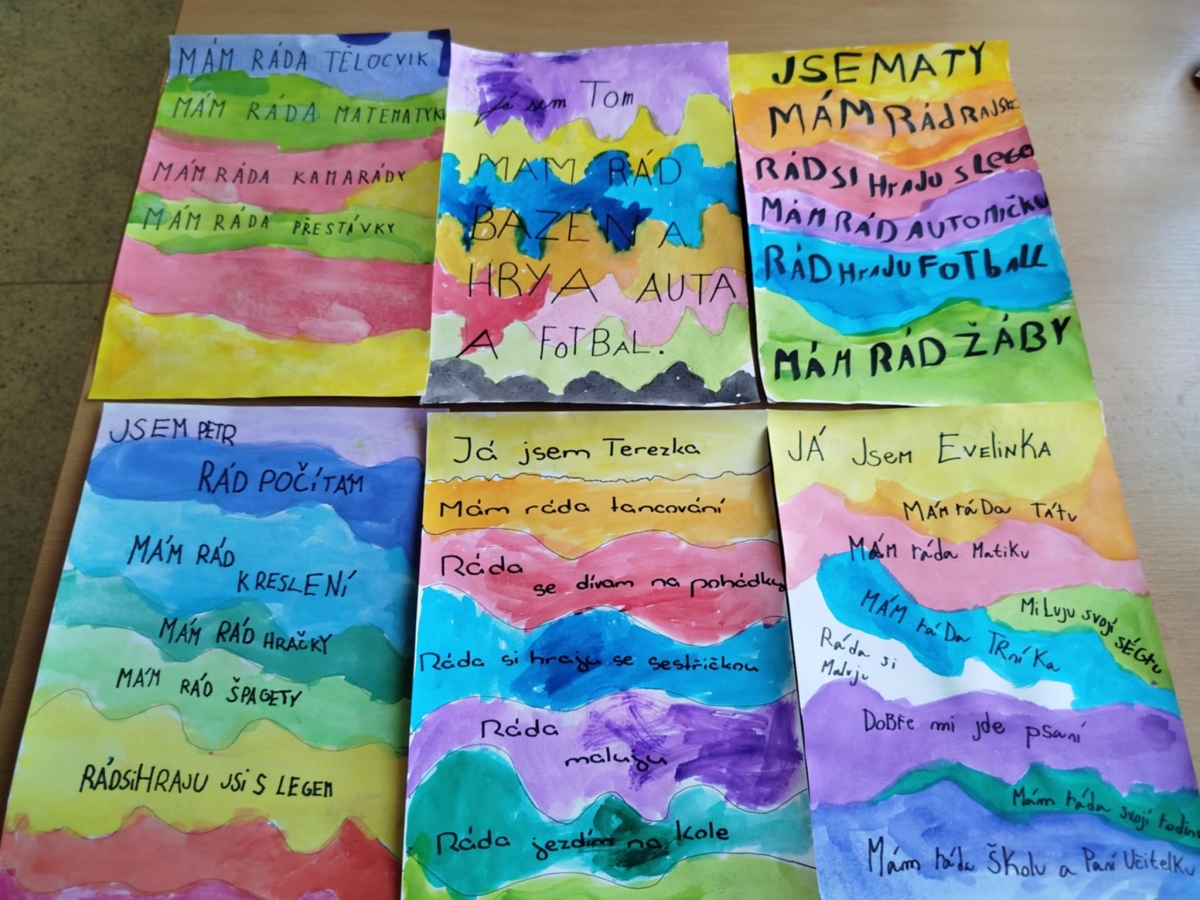 MÁM RÁDA TĚLOCVIK
MÁM RÁDA MATEMATYKU
MÁM RÁDA KAMARÁDY
MÁM RÁDA PŘESTÁVKY
Já sem Tom
MAM RÁD
BAZEN A
HRY A AUTA
A FOTBAL.
JSEMATY
MÁM RÁD RAJSK
RÁD SI HraJU S LEGO
MÁM RÁD AUTOMIČKU
RÁD HraJU FOTbALL
MÁM RÁD ŽÁBY
JSEM PETR
RÁD POČÍTAM
MÁM RÁD
KRESLENÍ
MÁM RÁD HRAČKY
MÁM RÁD ŠPAGETY
RÁDSiHRAJU JSI S LEGEM
Já jsem Terezka
Mám ráda tancování
Ráda
se dívam na pohádky
Ráda si hraju se sestřičkou
Ráda
maluju
Ráda jezdím na kole
JÁ Jsem EvelinKa
MÁM ráDa Tátu
MÁM ráda Matiku
MiLuju svojí SÉGru
MÁM ráDa TRníKa
Ráda si
Maluju
DoBře mi jde psaní
Mám ráda svoji rodinu
Mám ráda ŠKolu a Paní Učitelku